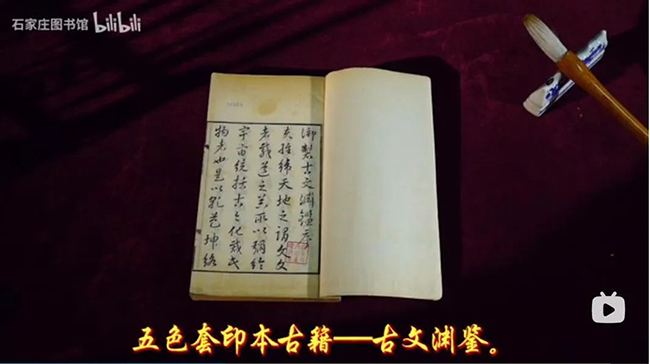 石家庄图书馆 bilibili
御製古文渊鑒序
夫經緯天地之謂文文
者載道之器所以彌綸
宇宙統括古今化裁民
物者也是以乾苞坤絡
五色套印本古籍——古文渊鉴。